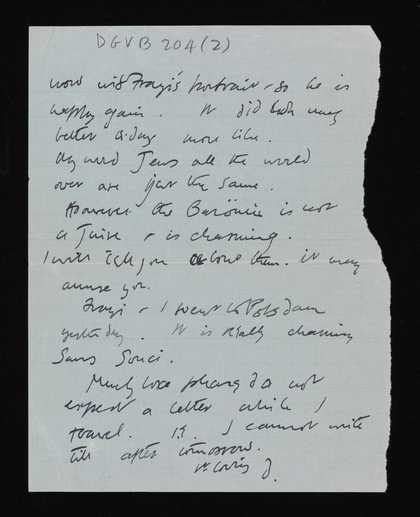 DGVB 204(2)
now with Frazi's portrait - so he is
happy again. It did look very
better to-day more like.
My word Jews all the world
over are just the same.
However the Baronin is not
a Juive & is charming.
I will tell you about them. It may
amuse you.
Frazi & I went to Potsdam
yesterday. It is really charming
Sans Souci.
Much love please do not
expect a letter while I
travel. I cannot write
till after tomorrow.